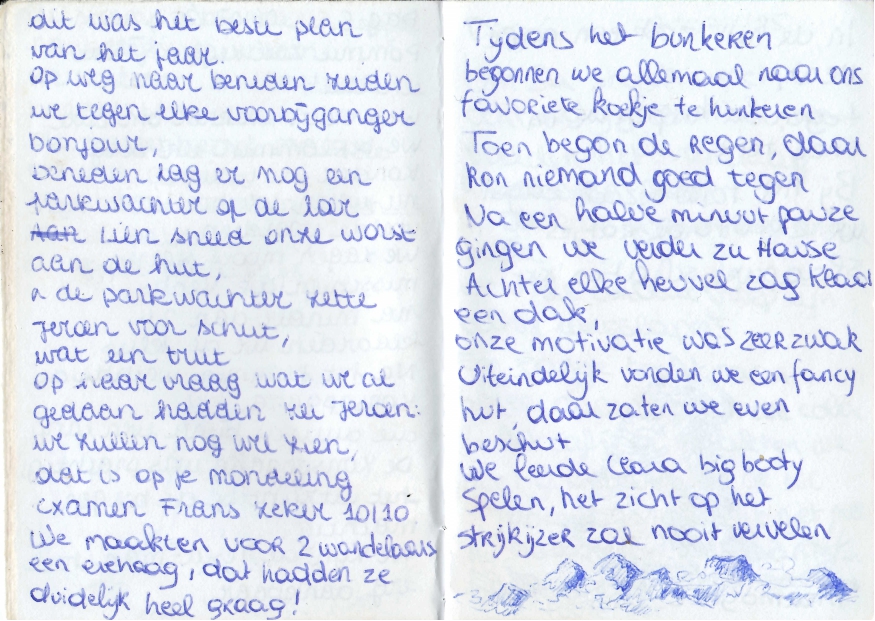 dit was het beste plan
van het jaar.
op weg naar beneden zeiden
we tegen elke voorbijganger
bonjour,
beneden lag er nog een
parkwachter op de loer
Lien sneed onze worst
aan de hut,
n de parkwachter zette
Jeroen voor schut,
wat een trut
op haar vraag wat we al
gedaan hadden zei Jeroen:
we zullen nog wel zien,
dat is op je mondeling
examen Frans zeker 10/10
We maakten voor 2 wandelaars
een erehaag, dat hadden ze
duidelijk heel graag!
Tydens het bunkeren
begonnen we allemaal naar ons
favoriete koekje te hunkeren
Toen begon de regen, daar
kon niemand goed tegen
Na een halve minuut pauze
gingen we verder zu Hause
Achter elke heuvel zag Klaar
een dak,
onze motivatie was zeer zwak
Uiteindelijk vonden we een fancy
hut, daar zaten we even
beschut
We leerde Clara big booty
spelen, het zicht op het
strijkijzer zal nooit vervelen